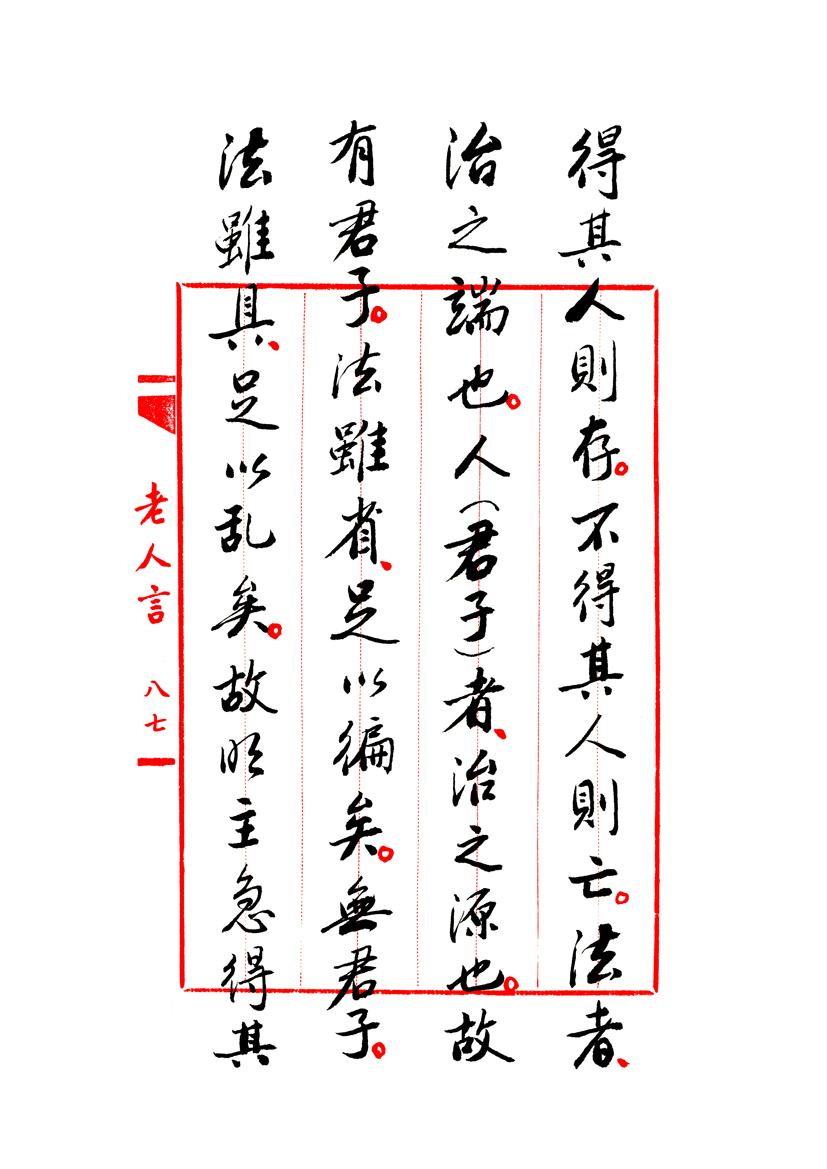 得其人則存。不得其人則亡。法者、
治之端也。人(君子)者、治之源也。故
有君子。法雖省、足以徧矣。無君子。
法雖具、足以乱矣。故明主急得其
老人言 八七